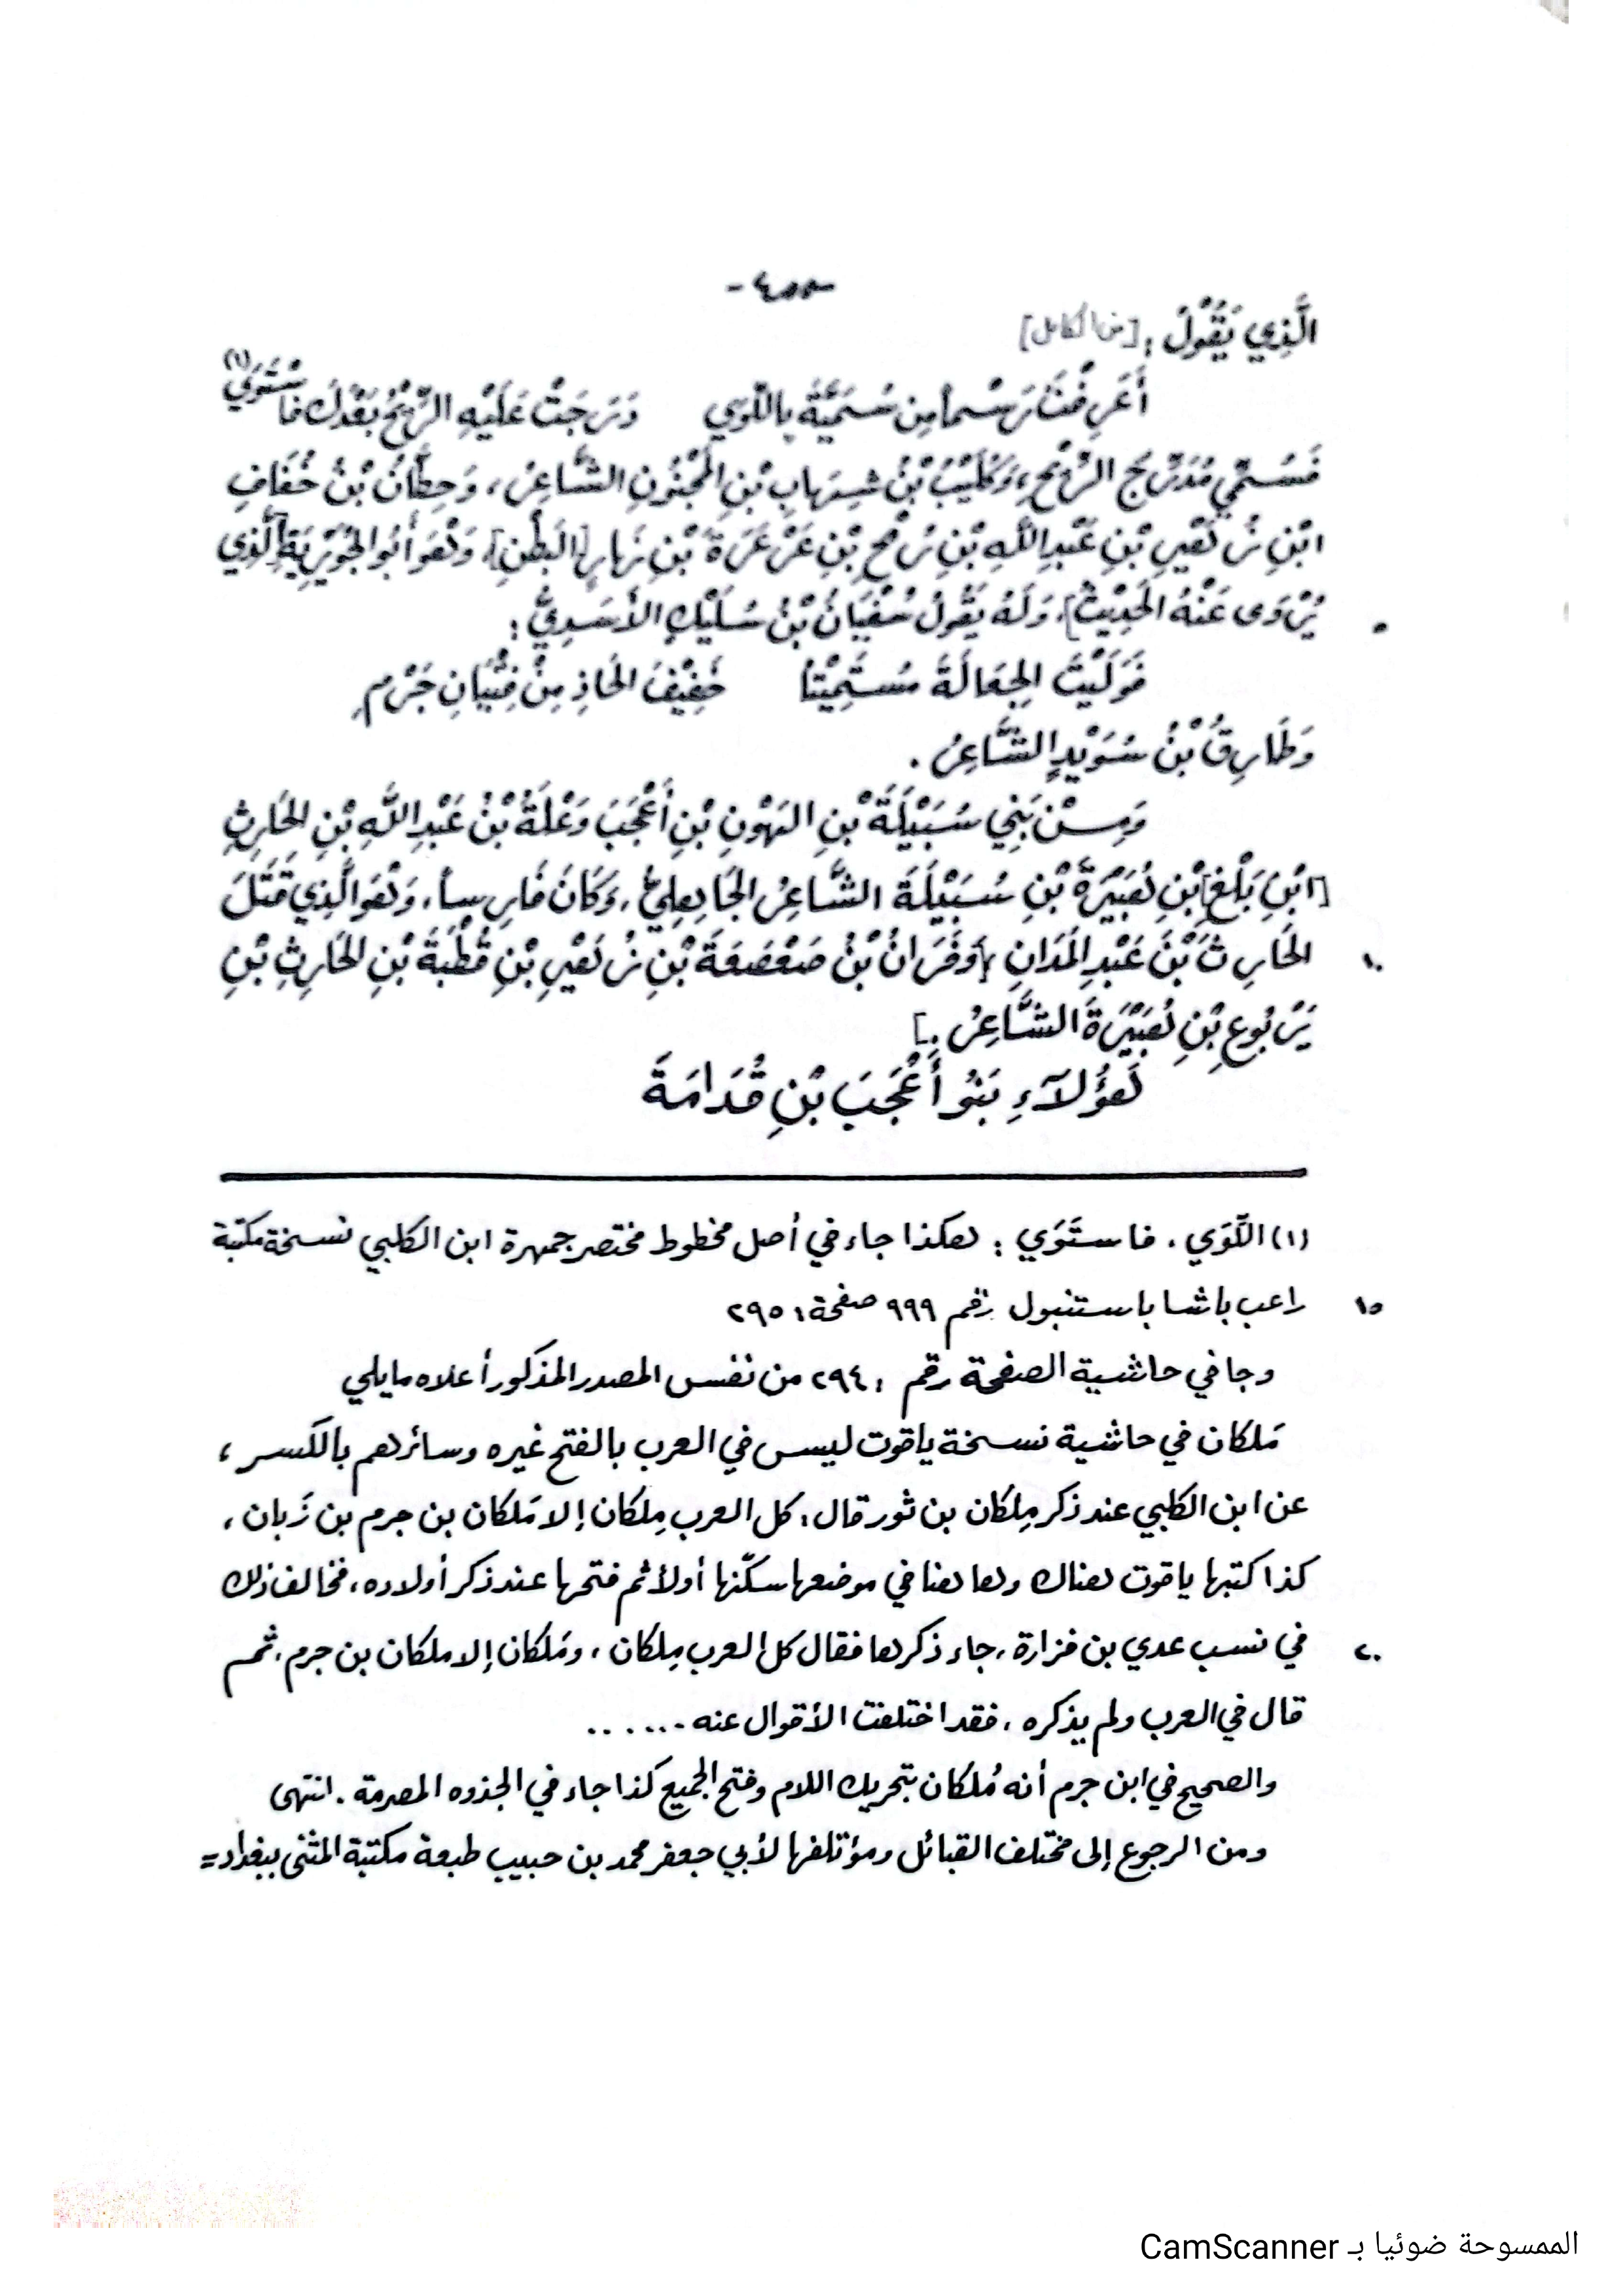 -٤٥٥-
الَّذِي يَقُولُ: [من الكامل]
أَعَرِفْتَ رَسْماً مِن سُمَيَّةَ بِاللَّوَي دَرَجَتْ عَلَيْهِ الرِّيْحُ بَعْدَكَ فَاسْتَوَي (١)
فَسُمِّيَ مُدَرِّجَ الرِّيْحِ، وَكُلَيْبُ بْنُ شِهَابِ بْنِ المَجْنُونِ الشَّاعِرُ، وَحِطَّانُ بْنُ خُفَافِ
ابْنِ زُهَيْرِ بْنِ عَبْدِ اللَّهِ بْنِ رُمْحِ بْنِ عَرْعَرَةَ بْنِ نَهَارٍ [البَطْنِ]، وَهُوَ أَبُو الجُوَيْرِيَةِ [الَّذِي
يُرْوَى عَنْهُ الحَدِيْثُ]، وَلَهُ يَقُولُ سُفْيَانُ بْنُ سُلَيْكٍ الأَسَدِيُّ:
فَوَلَيْتَ الجِعَالَةَ مُسْتَمِيْتاً خَفِيْفَ الحَاذِ مِنْ فِتْيَانِ جَرْمِ
وَطَارِقُ بْنُ سُوَيْدٍ الشَّاعِرُ.
وَمِنْ بَنِي سُبَيْلَةَ بْنِ الهَوْنِ بْنِ أَعْجَبَ وَعْلَةُ بْنُ عَبْدِ اللَّهِ بْنِ الحَارِثِ
[ابْنِ بَلْغِ] بْنِ هُبَيْرَةَ بْنِ سُبَيْلَةَ الشَّاعِرُ الجَاهِلِيُّ، وَكَانَ فَارِساً، وَهُوَ الَّذِي قَتَلَ
١٠ الحَارِثَ بْنَ عَبْدِ المَدَانِ، [وَفَرَّانُ بْنُ صَعْصَعَةَ بْنِ زُهَيْرِ بْنِ قُطْبَةَ بْنِ الحَارِثِ بْنِ
يَرْبُوعِ بْنِ هُبَيْرَةَ الشَّاعِرُ.]
هَؤُلآءِ بَنُو أَعْجَبَ بْنِ قُدَامَةَ
(١) اللَّوَي، فاستَوَي: هكذا جاء في أصل مخطوط مختصر جمهرة ابن الكلبي نسخة مكتبة
١٥ راغب باشا باستنبول رقم ٩٩٩ صفحة: ٢٩٥
وجا في حاشية الصفحة رقم: ٢٩٤ من نفس المصدر المذكور أعلاه مايلي
مَلكان في حاشية نسخة ياقوت ليس في العرب بالفتح غيره وسائرهم بالكسر،
عن ابن الكلبي عند ذكر مِلكان بن ثور قال: كل العرب مِلكان إلا مَلكان بن جرم بن رَبان،
كذا كتبها ياقوت هناك وها هنا في موضعها سكّنها أولاً ثم فتحها عند ذكر أولاده، فخالف ذلك
٢٠ في نسب عدي بن فزارة، جاء ذكرها فقال كل العرب مِلكان، ومَلكان إلا ملكان بن جرم، ثم
قال في العرب ولم يذكره، فقد اختلفت الأقوال عنه .......
والصحيح في ابن جرم أنه مُلكان بتحريك اللام وفتح الجميع كذا جاء في الجذوه المصرمة. انتهى
ومن الرجوع إلى مختلف القبائل ومؤتلفها لأبي جعفر محمد بن حبيب طبعة مكتبة المثنى ببغداد =
الممسوحة ضوئيا بـ CamScanner